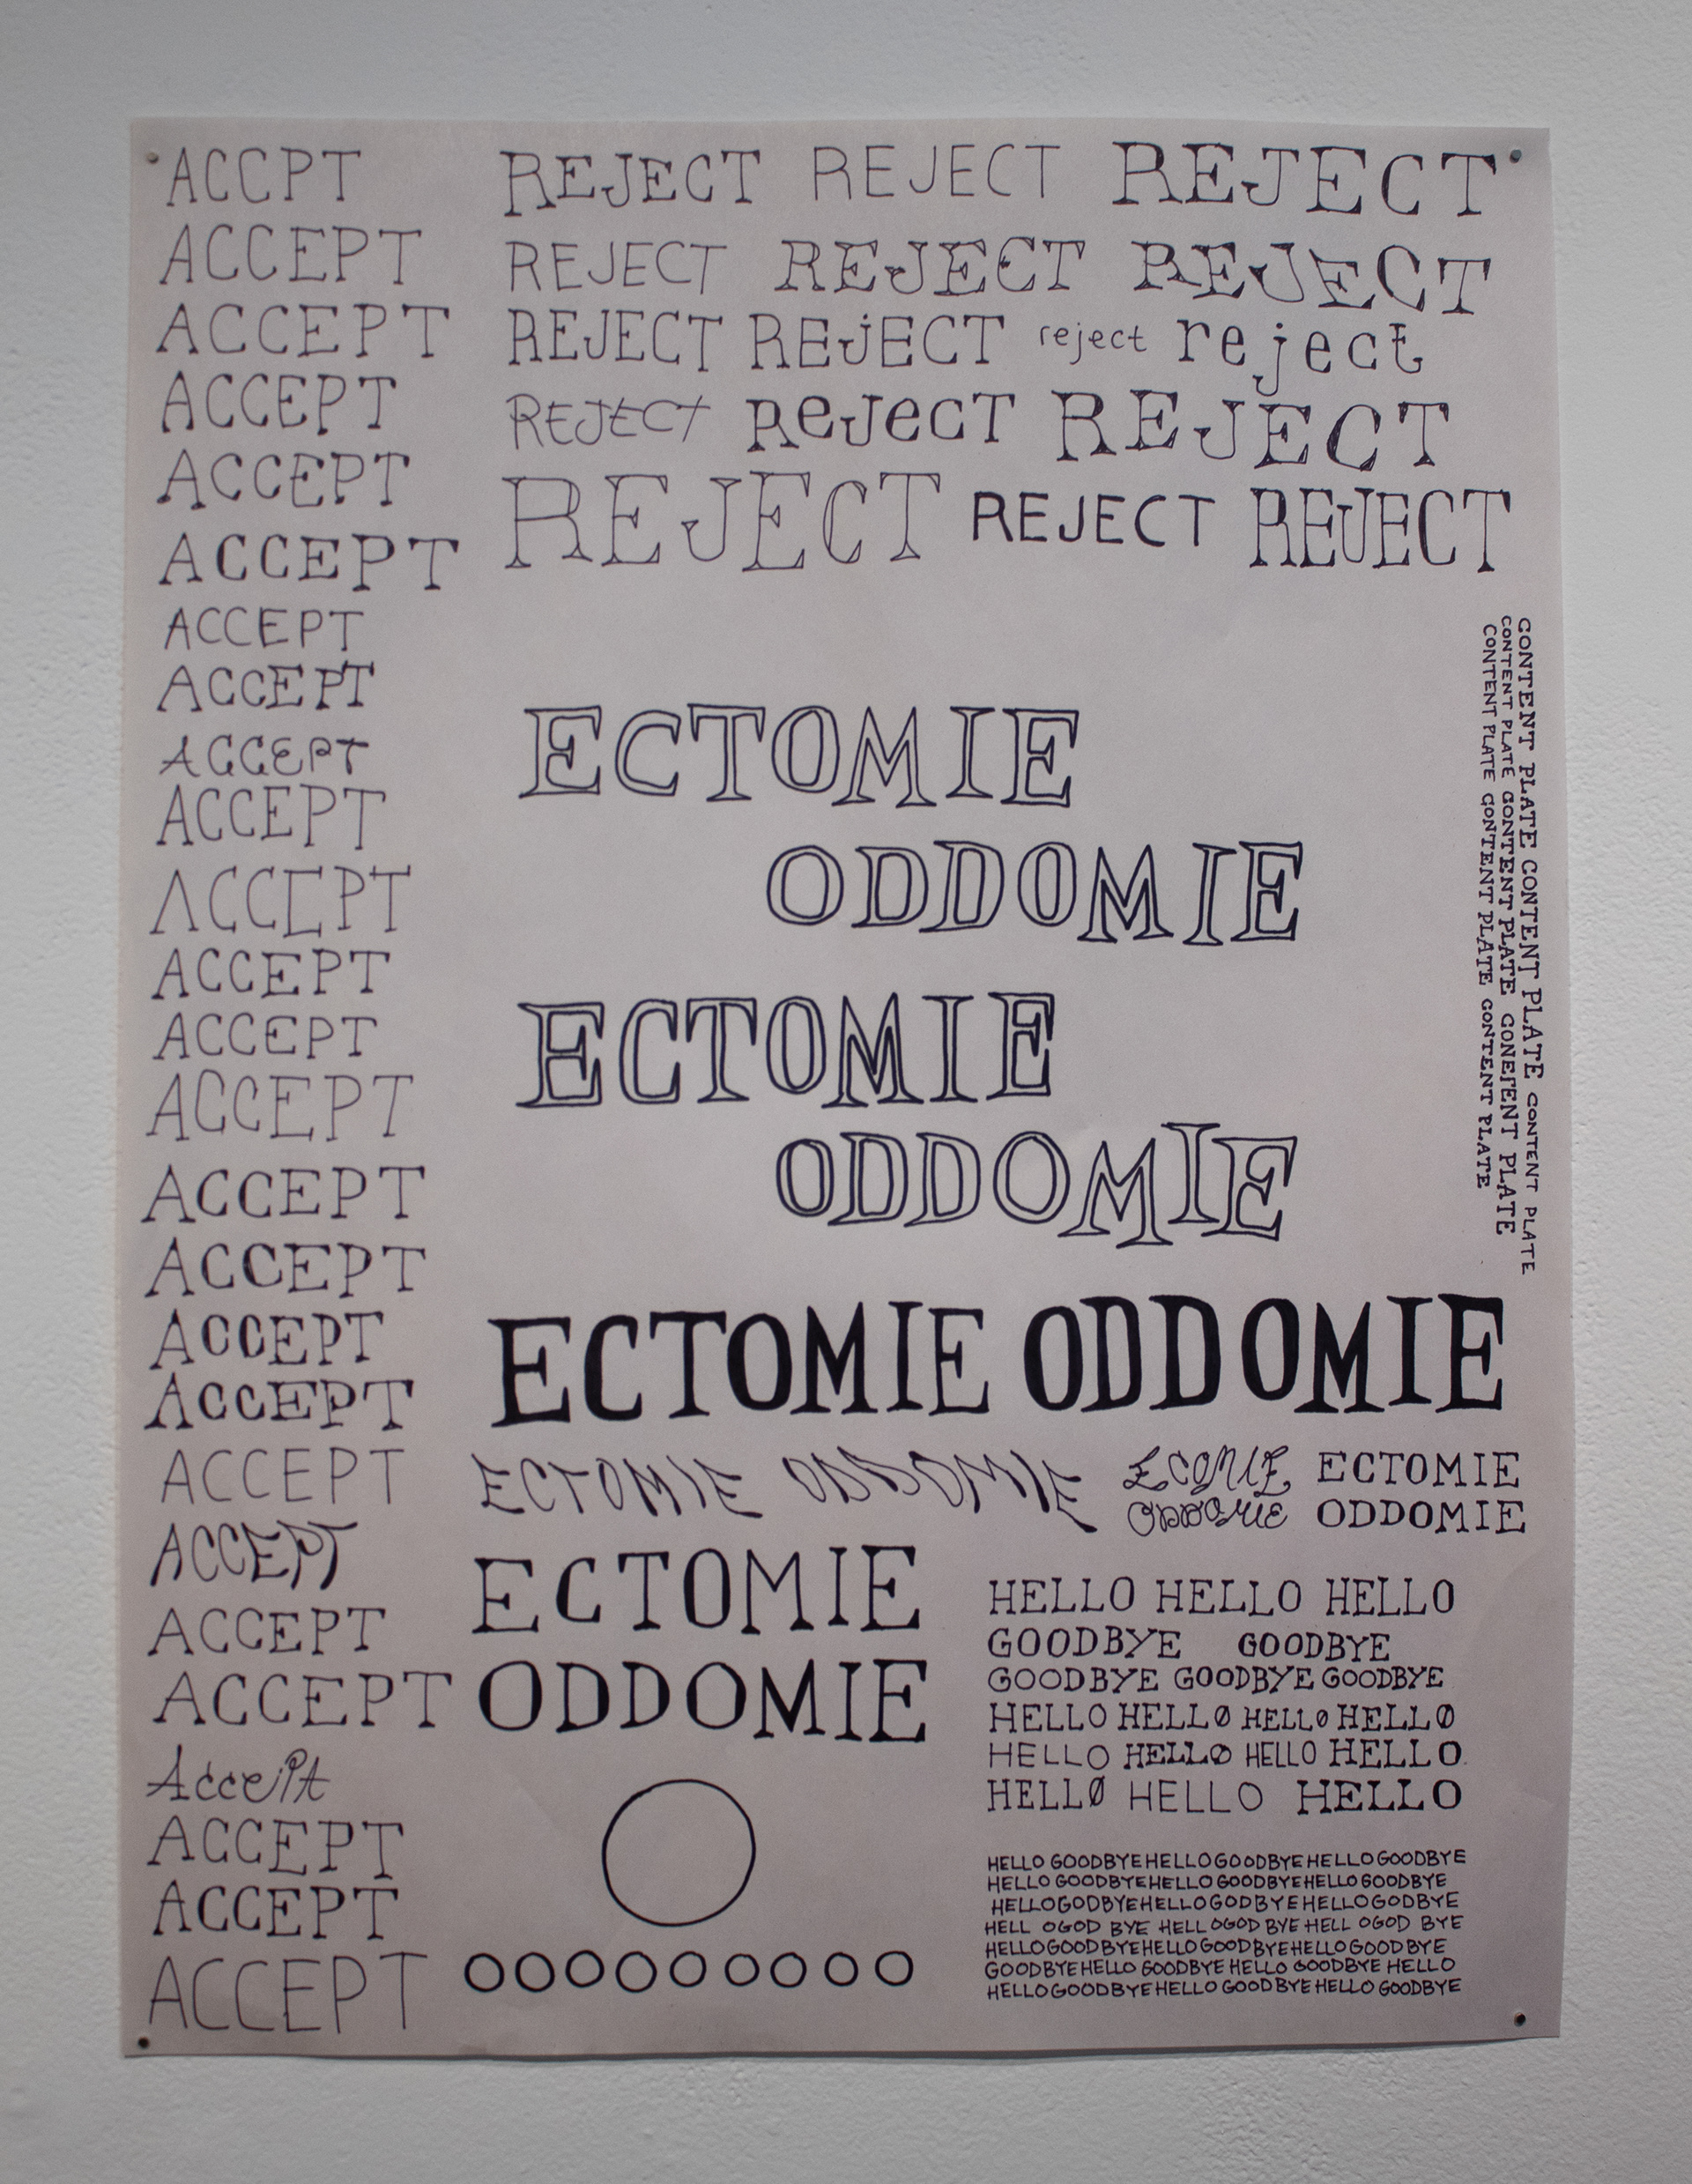 ACCPT
ACCEPT
ACCEPT
ACCEPT
ACCEPT
ACCEPT
ACCEPT
ACCEPT
ACCEPT
ACCEPT
ACCEPT
ACCEPT
ACCEPT
ACCEPT
ACCEPT
ACCEPT
ACCEPT
ACCEPT
ACCEPT
ACCEPT
ACCEPT
ACCEPT
AccePt
ACCEPT
ACCEPT
ACCEPT
REJECT REJECT REJECT
REJECT REJECT REJECT
REJECT REjECT reject reject
REJECT ReJecT REJECT
REJECT REJECT REJECT
ECTOMIE
ODDOMIE
ECTOMIE
ODDOMIE
ECTOMIE ODDOMIE
ECTOMIE ODDOMIE
ECOMIE
ODDOMIE
ECTOMIE
ODDOMIE
ECTOMIE
ODDOMIE
CONTENT PLATE CONTENT PLATE CONTENT PLATE
CONTENT PLATE CONTENT PLATE CONEFENT PLATE
CONTENT PLATE CONTENT PLATE CONTENT PLATE
HELLO HELLO HELLO
GOODBYE GOODBYE
GOODBYE GOODBYE GOODBYE
HELLO HELLØ HELLØ HELLØ
HELLO HELLØ HELLO HELLO
HELLØ HELLO HELLO
HELLO GOODBYE HELLO GOODBYE HELLO GOODBYE
HELLO GOODBYE HELLO GOODBYE HELLO GOODBYE
HELLO GODBYE HELLO GODBYE HELLO GODBYE
HELL OGOD BYE HELL OGOD BYE HELL OGOD BYE
HELLO GOOD BYE HELLO GOOD BYE HELLO GOOD BYE
GOODBYE HELLO GOODBYE HELLO GOODBYE HELLO
HELLO GOODBYE HELLO GOODBYE HELLO GOODBYE